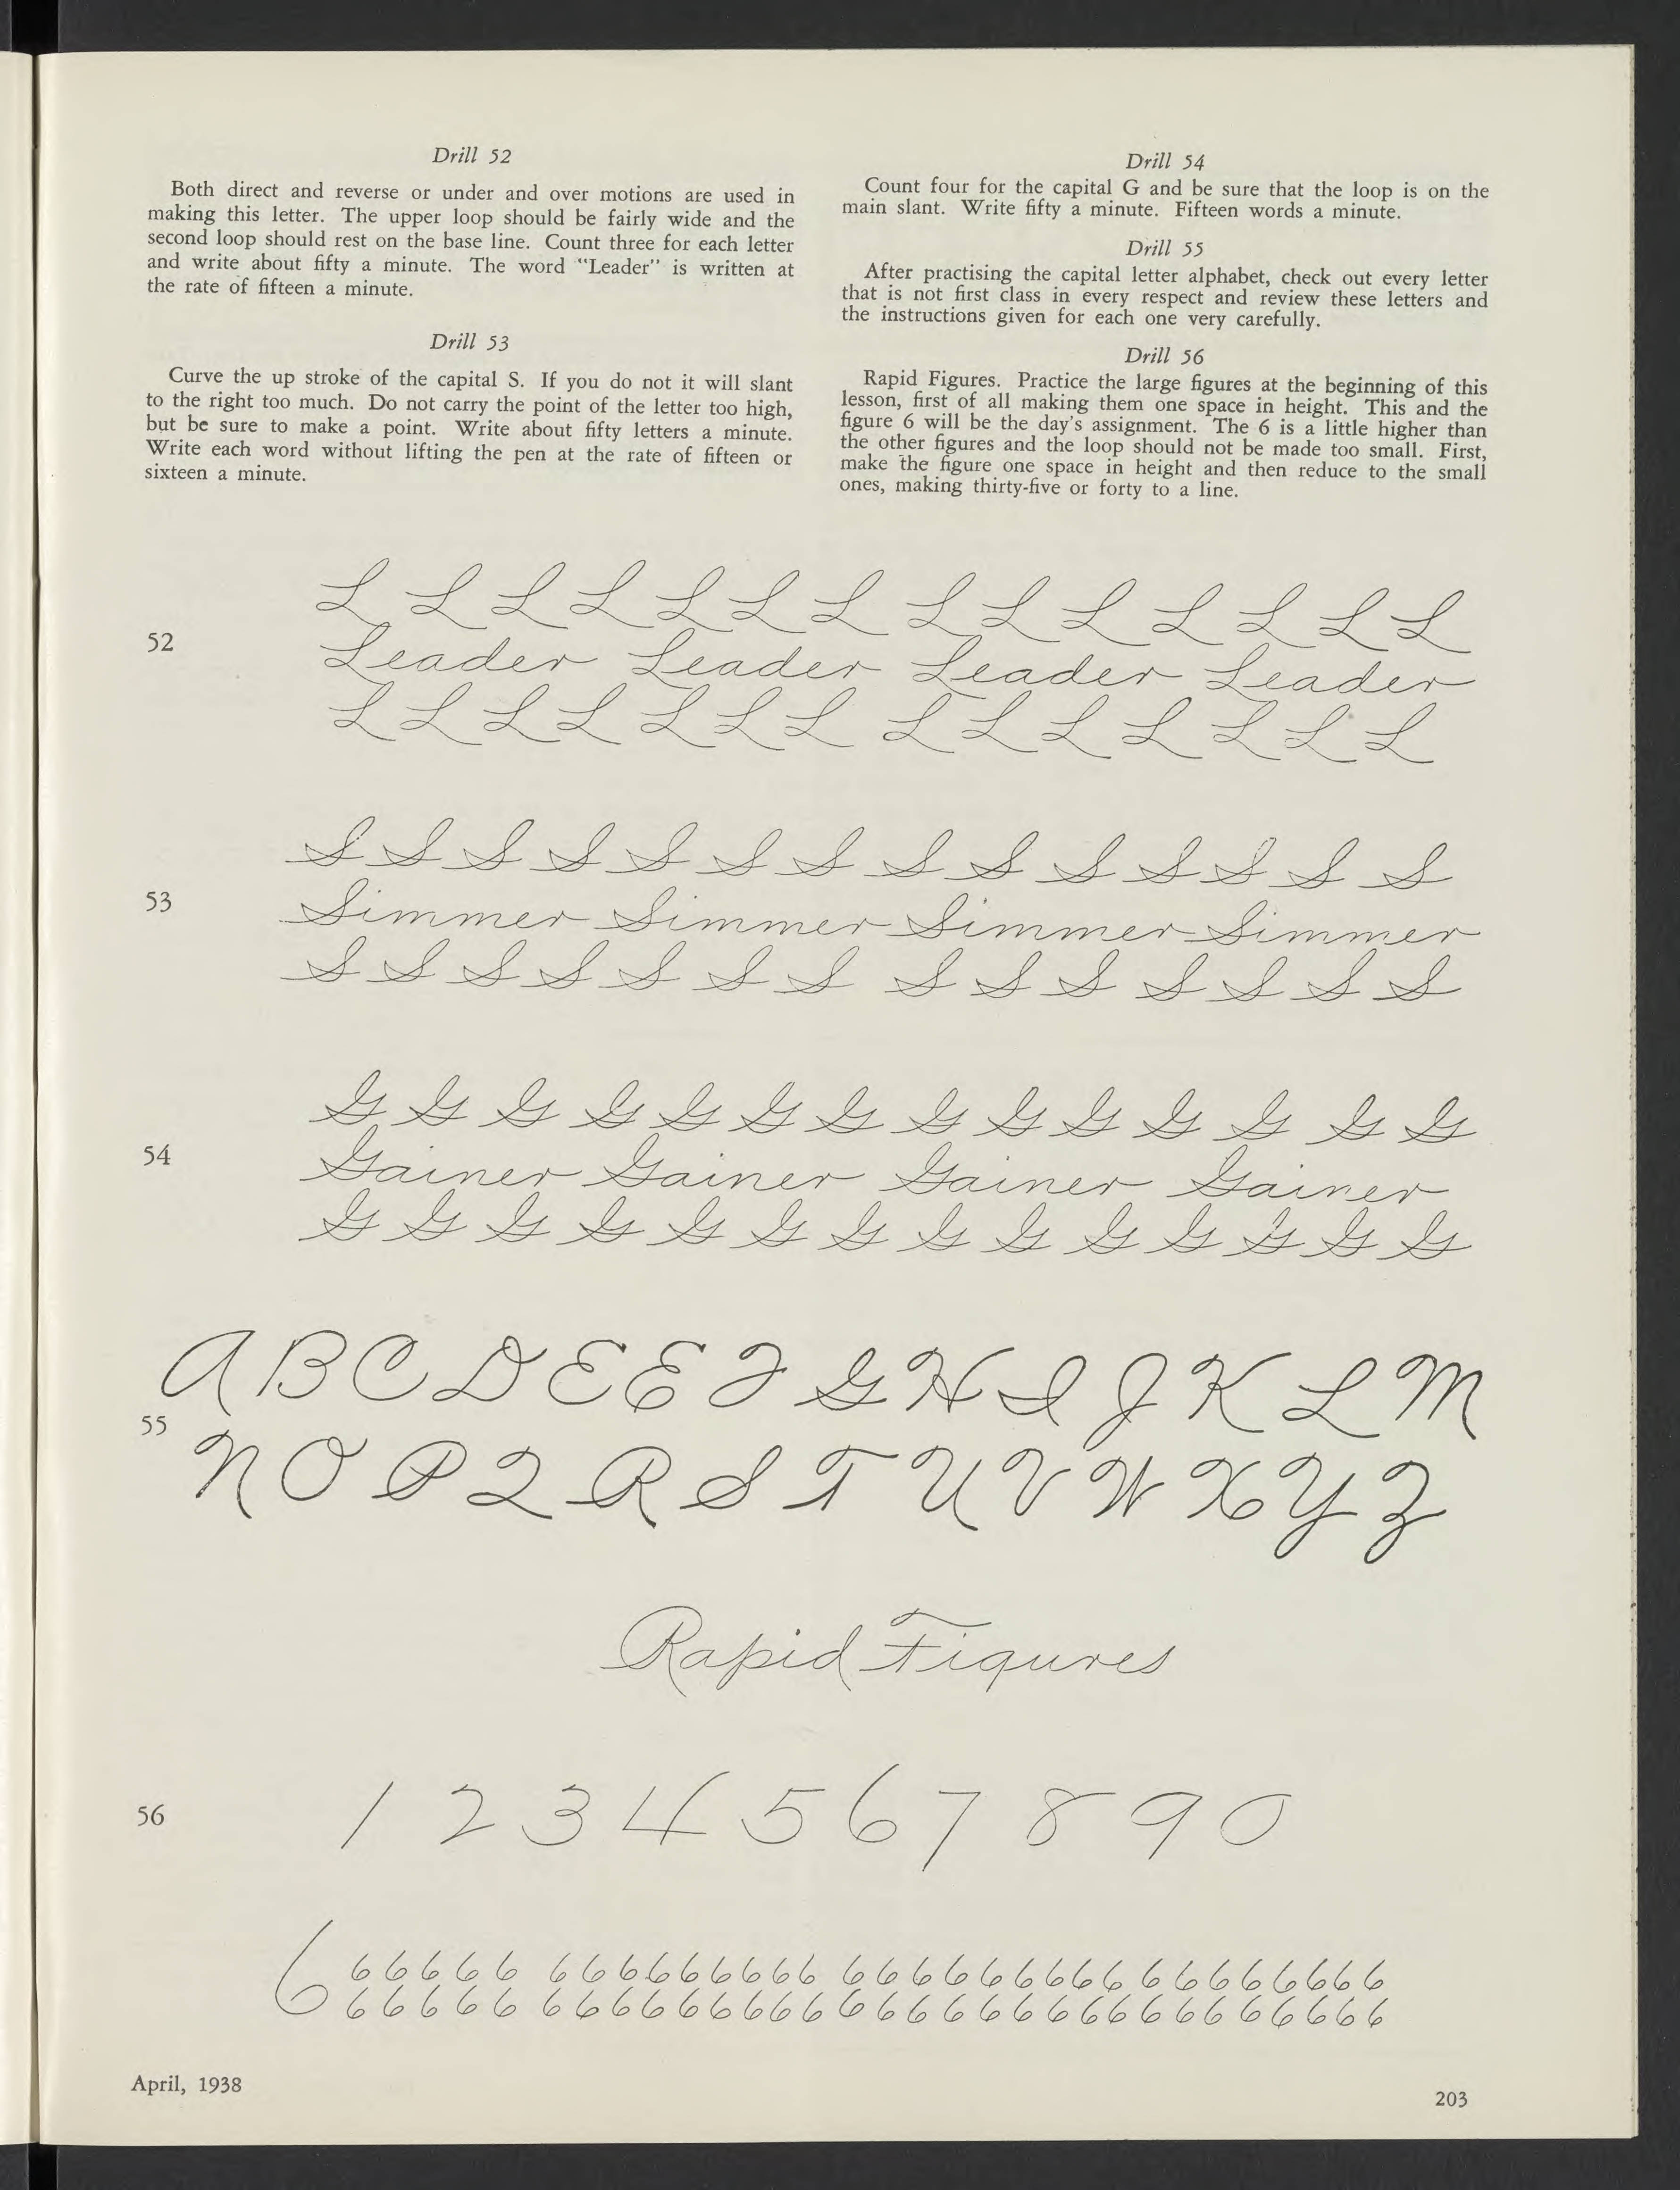 Drill 52
Both direct and reverse or under and over motions are used in
making this letter. The upper loop should be fairly wide and the
second loop should rest on the base line. Count three for each letter
and write about fifty a minute. The word "Leader" is written at
the rate of fifteen a minute.
Drill 53
Curve the up stroke of the capital S. If you do not it will slant
to the right too much. Do not carry the point of the letter too high,
but be sure to make a point. Write about fifty letters a minute.
Write each word without lifting the pen at the rate of fifteen or
sixteen a minute.
Drill 54
Count four for the capital G and be sure that the loop is on the
main slant. Write fifty a minute. Fifteen words a minute.
Drill 55
After practising the capital letter alphabet, check out every letter
that is not first class in every respect and review these letters and
the instructions given for each one very carefully.
Drill 56
Rapid Figures. Practice the large figures at the beginning of this
lesson, first of all making them one space in height. This and the
figure 6 will be the day's assignment. The 6 is a little higher than
the other figures and the loop should not be made too small. First,
make the figure one space in height and then reduce to the small
ones, making thirty-five or forty to a line.
L L L L L L L L L L L L L L
52
Leader Leader Leader Leader
L L L L L L L L L L L L L L
S S S S S S S S S S S S S S
53
Simmer Simmer Simmer Simmer
S S S S S S S S S S S S S S
G G G G G G G G G G G G G G
54
Gainer Gainer Gainer Gainer
G G G G G G G G G G G G G G
A B C D E E F G H I J K L M
55
N O P Q R S T U V W X Y Z
Rapid Figures
56
1 2 3 4 5 6 7 8 9 0
6 6 6 6 6 6 6 6 6 6 6 6 6 6 6 6 6 6 6 6 6 6 6 6 6 6 6 6 6 6 6 6
6 6 6 6 6 6 6 6 6 6 6 6 6 6 6 6 6 6 6 6 6 6 6 6 6 6 6 6 6 6 6
April, 1938
203